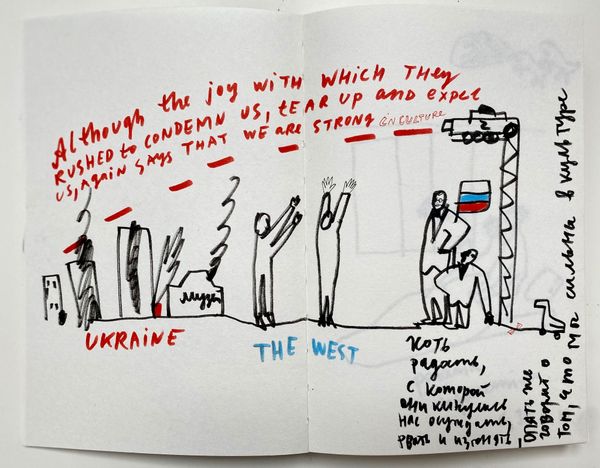 Although the joy with which They
RUSHED to CONDEMN US, tEAR UP AND EXPEL
US, AGAIN SAYS THAT WE ARE STRONG (in CULTURE
Z
музей
UKRAINE
THE WEST
Хоть
радость,
с которой
они кинулись
нас осуждать,
рвать и изгонять,
опять же
говорит о
том, что мы сильны в культуре